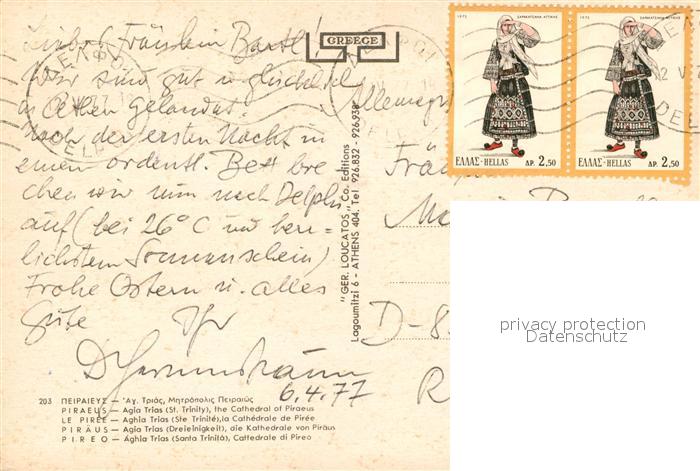 GREECE
Liebes Fräulein Bartl!
Wir sind gut u. glücklich
in Athen gelandet.
Nach der ersten Nacht in
einem ordentl. Bett bre
chen wir nun nach Delphi
auf (bei 26° C und herr=
lichstem Sonnenschein)
Frohe Ostern u. alles
Gute Ihr
6.4.77
203 ΠΕΙΡΑΙΕΥΣ — Ἁγ. Τριάς, Μητρόπολις Πειραιῶς
PIRAEUS — Agia Trias (St. Trinity), the Cathedral of Piraeus
LE PIREE — Aghia Trias (Ste Trinité), la Cathédrale de Pirée
PIRÄUS — Agia Trias (Dreieinigkeit), die Kathedrale von Piräus
PIREO — Ághia Trias (Santa Trinità), Cattedrale di Pireo
"GER. LOUCATOS" Co. Editions
Lagoumitzi 6 - ATHENS 404. Tel 926.832 - 926.938
1972 ΣΑΡΑΚΑΤΣΑΝΑ ΑΤΤΙΚΗΣ
ΕΛΛΑΣ-HELLAS ΔΡ. 2,50
1972 ΣΑΡΑΚΑΤΣΑΝΑ ΑΤΤΙΚΗΣ
ΕΛΛΑΣ-HELLAS ΔΡ. 2,50
Allemagne
D-8
R
privacy protection
Datenschutz